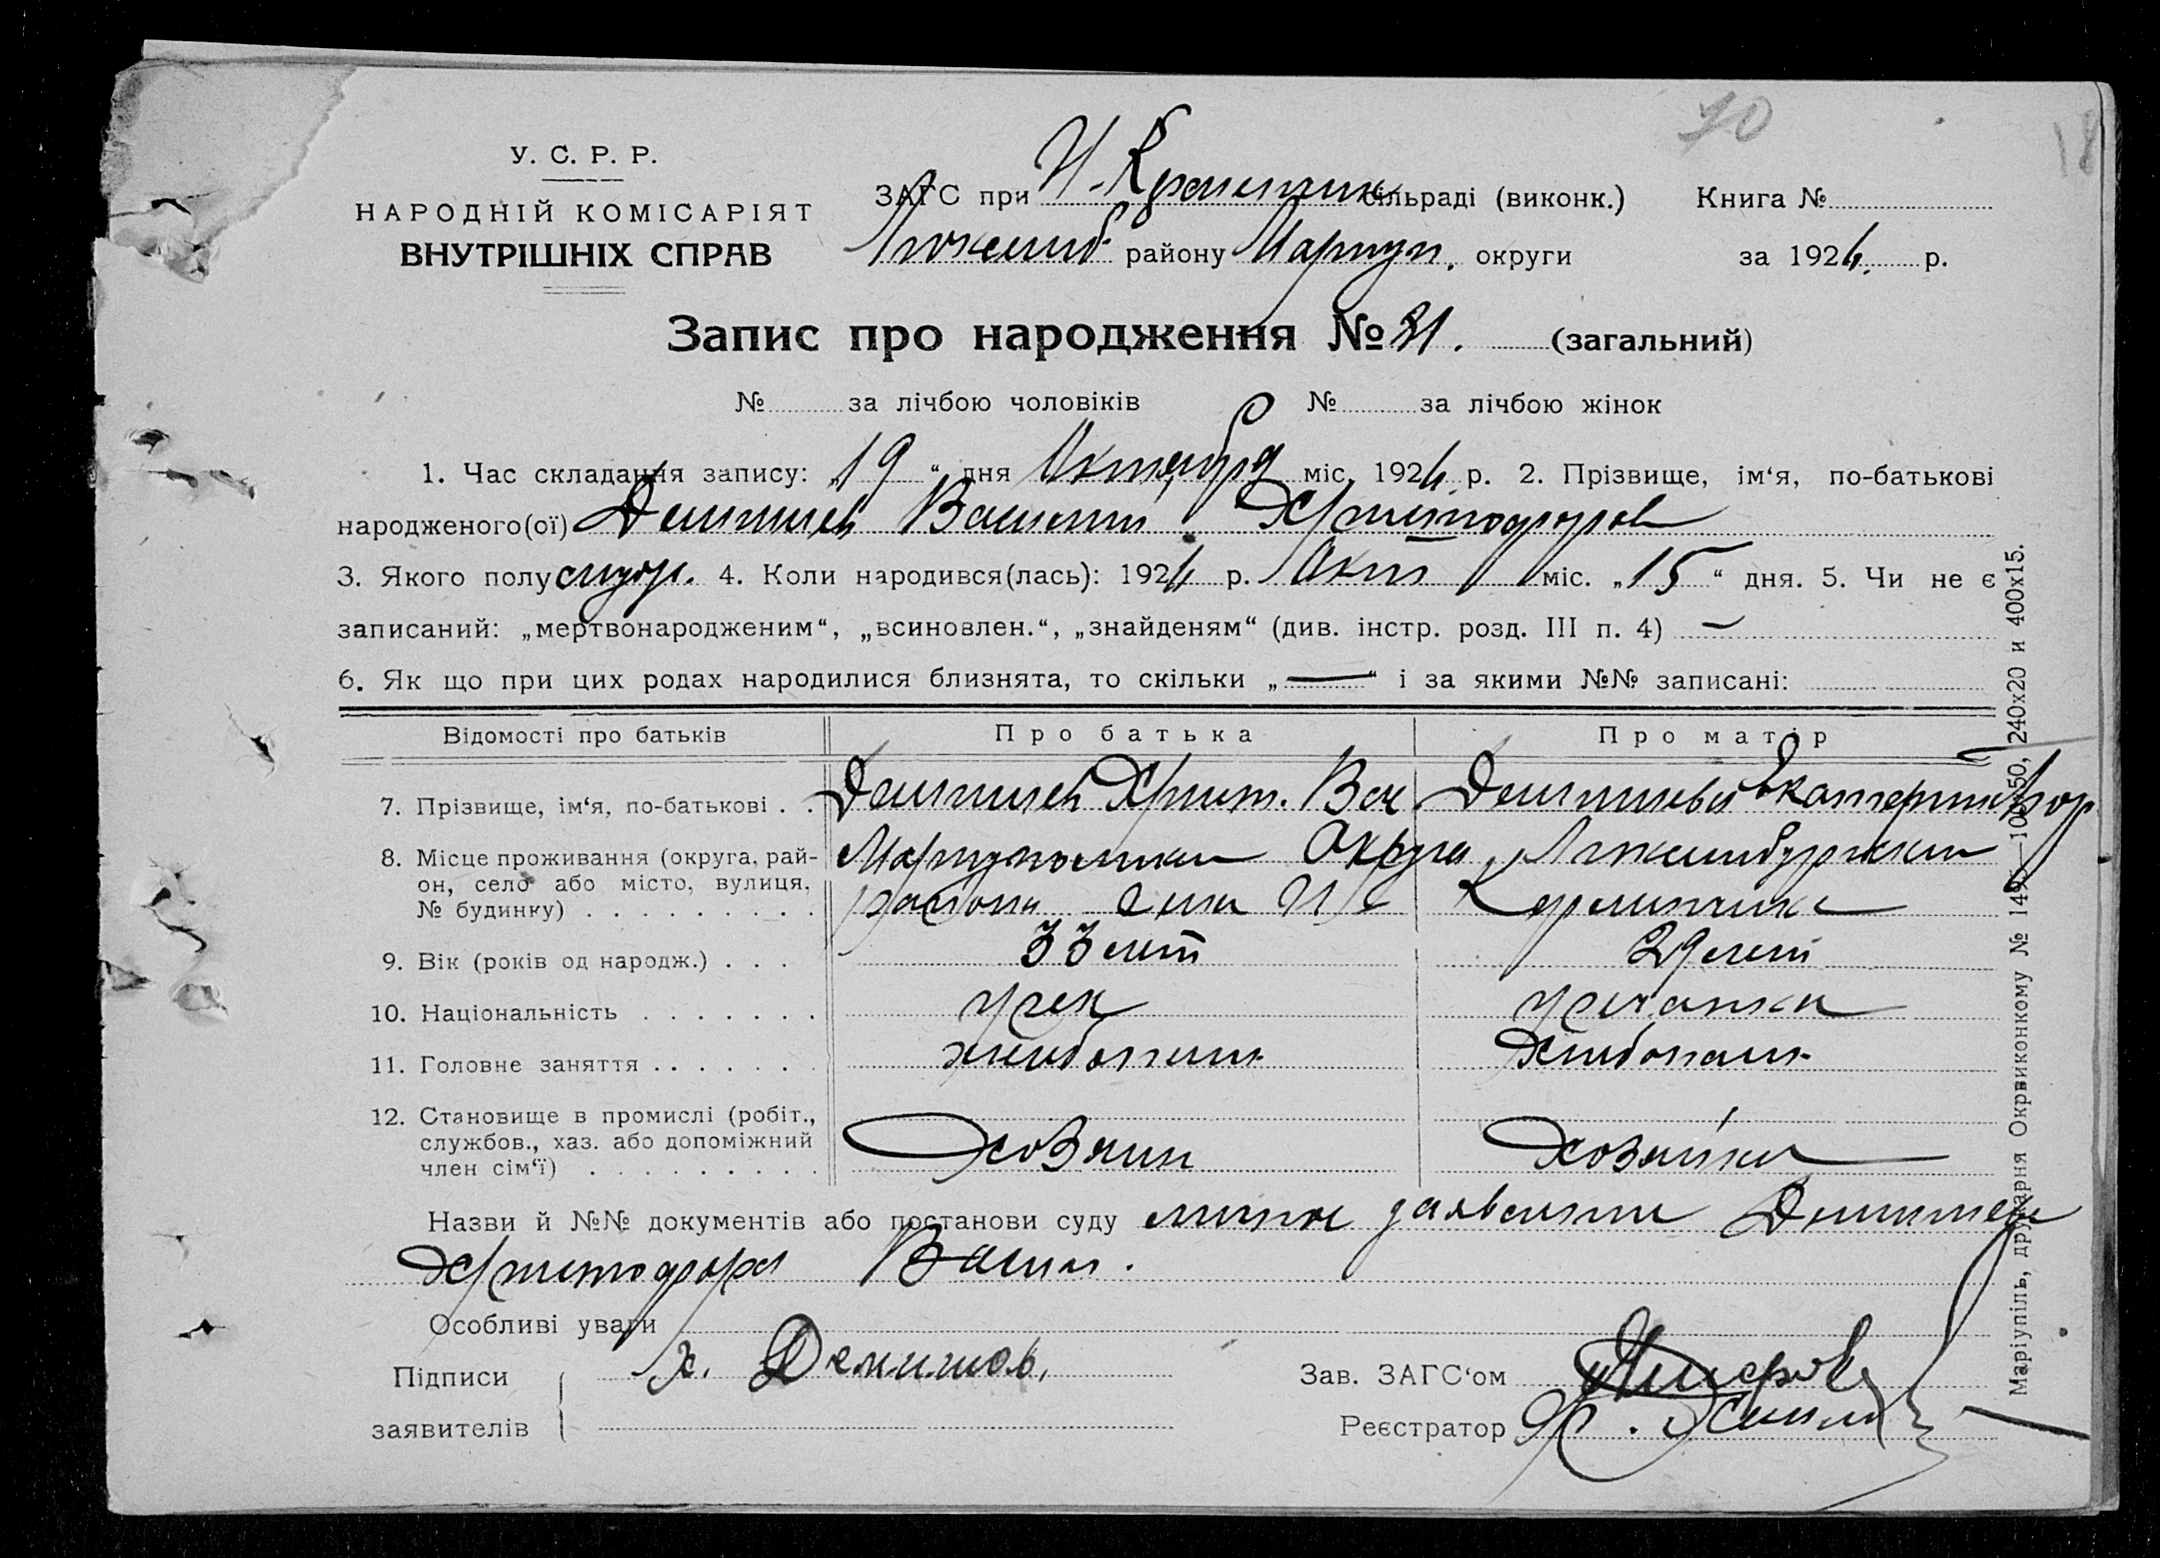 70
18
У. С. Р. Р.
НАРОДНІЙ КОМІСАРІЯТ
ВНУТРІШНІХ СПРАВ
ЗАГС при сільраді (виконк.) Книга №
району Мариуп. округи за 1924 р.
Запис про народження № 31. (загальний)
№ за лічбою чоловіків № за лічбою жінок
1. Час складання запису: „19“ дня Октября міс. 1924 р. 2. Прізвище, ім‘я, по-батькові
народженого(ої) Христофоров
3. Якого полу 4. Коли народився(лась): 1924 р. Окт міс. „15“ дня. 5. Чи не є
записаний: „мертвонародженим“, „всиновлен.“, „знайденям“ (див. інстр. розд. III п. 4) —
6. Як що при цих родах народилися близнята, то скільки „—“ і за якими №№ записані:
Відомості про батьків Про батька Про матір
7. Прізвище, ім‘я, по-батькові . . Христ. Вас Екатерина
8. Місце проживання (округа, рай- Мариупольский Округа,
он, село або місто, вулиця, района села
№ будинку) . . . . . . . . .
9. Вік (років од народж.) . . . 33 лет 29 лет
10. Національність . . . . . . . грек гречанка
11. Головне заняття . . . . . . . хлебопаш. Хлебопаш.
12. Становище в промислі (робіт.,
службов., хаз. або допоміжний Хозяин Хозяйка
член сім‘ї) . . . . . . . . .
Назви й №№ документів або постанови суду личное заявление
Христофора Васил.
Особливі уваги
Підписи Х. Зав. ЗАГС‘ом
заявителів Реєстратор
Маріупіль, друкарня Окрвиконкому № 149 —100x50, 240x20 и 400x15.